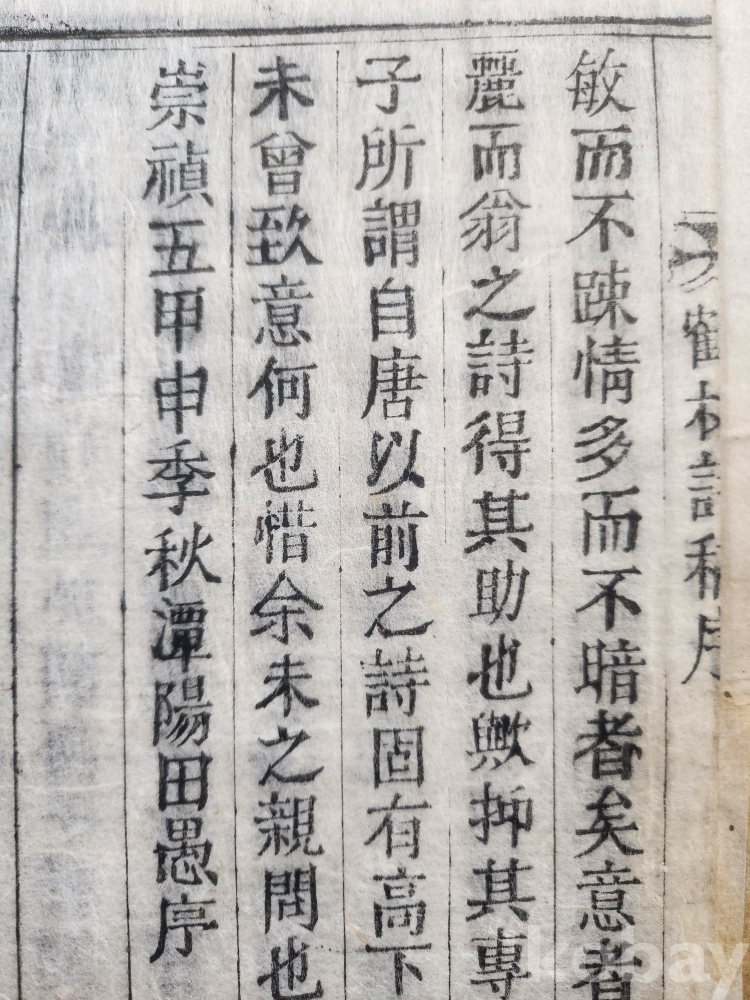 鶴林詩稿序
敏而不踈情多而不暗者矣意者
麗而翁之詩得其助也歟抑其專
子所謂自唐以前之詩固有高下
未曾致意何也惜余未之親問也
崇禎五甲申季秋潭陽田愚序
kobay